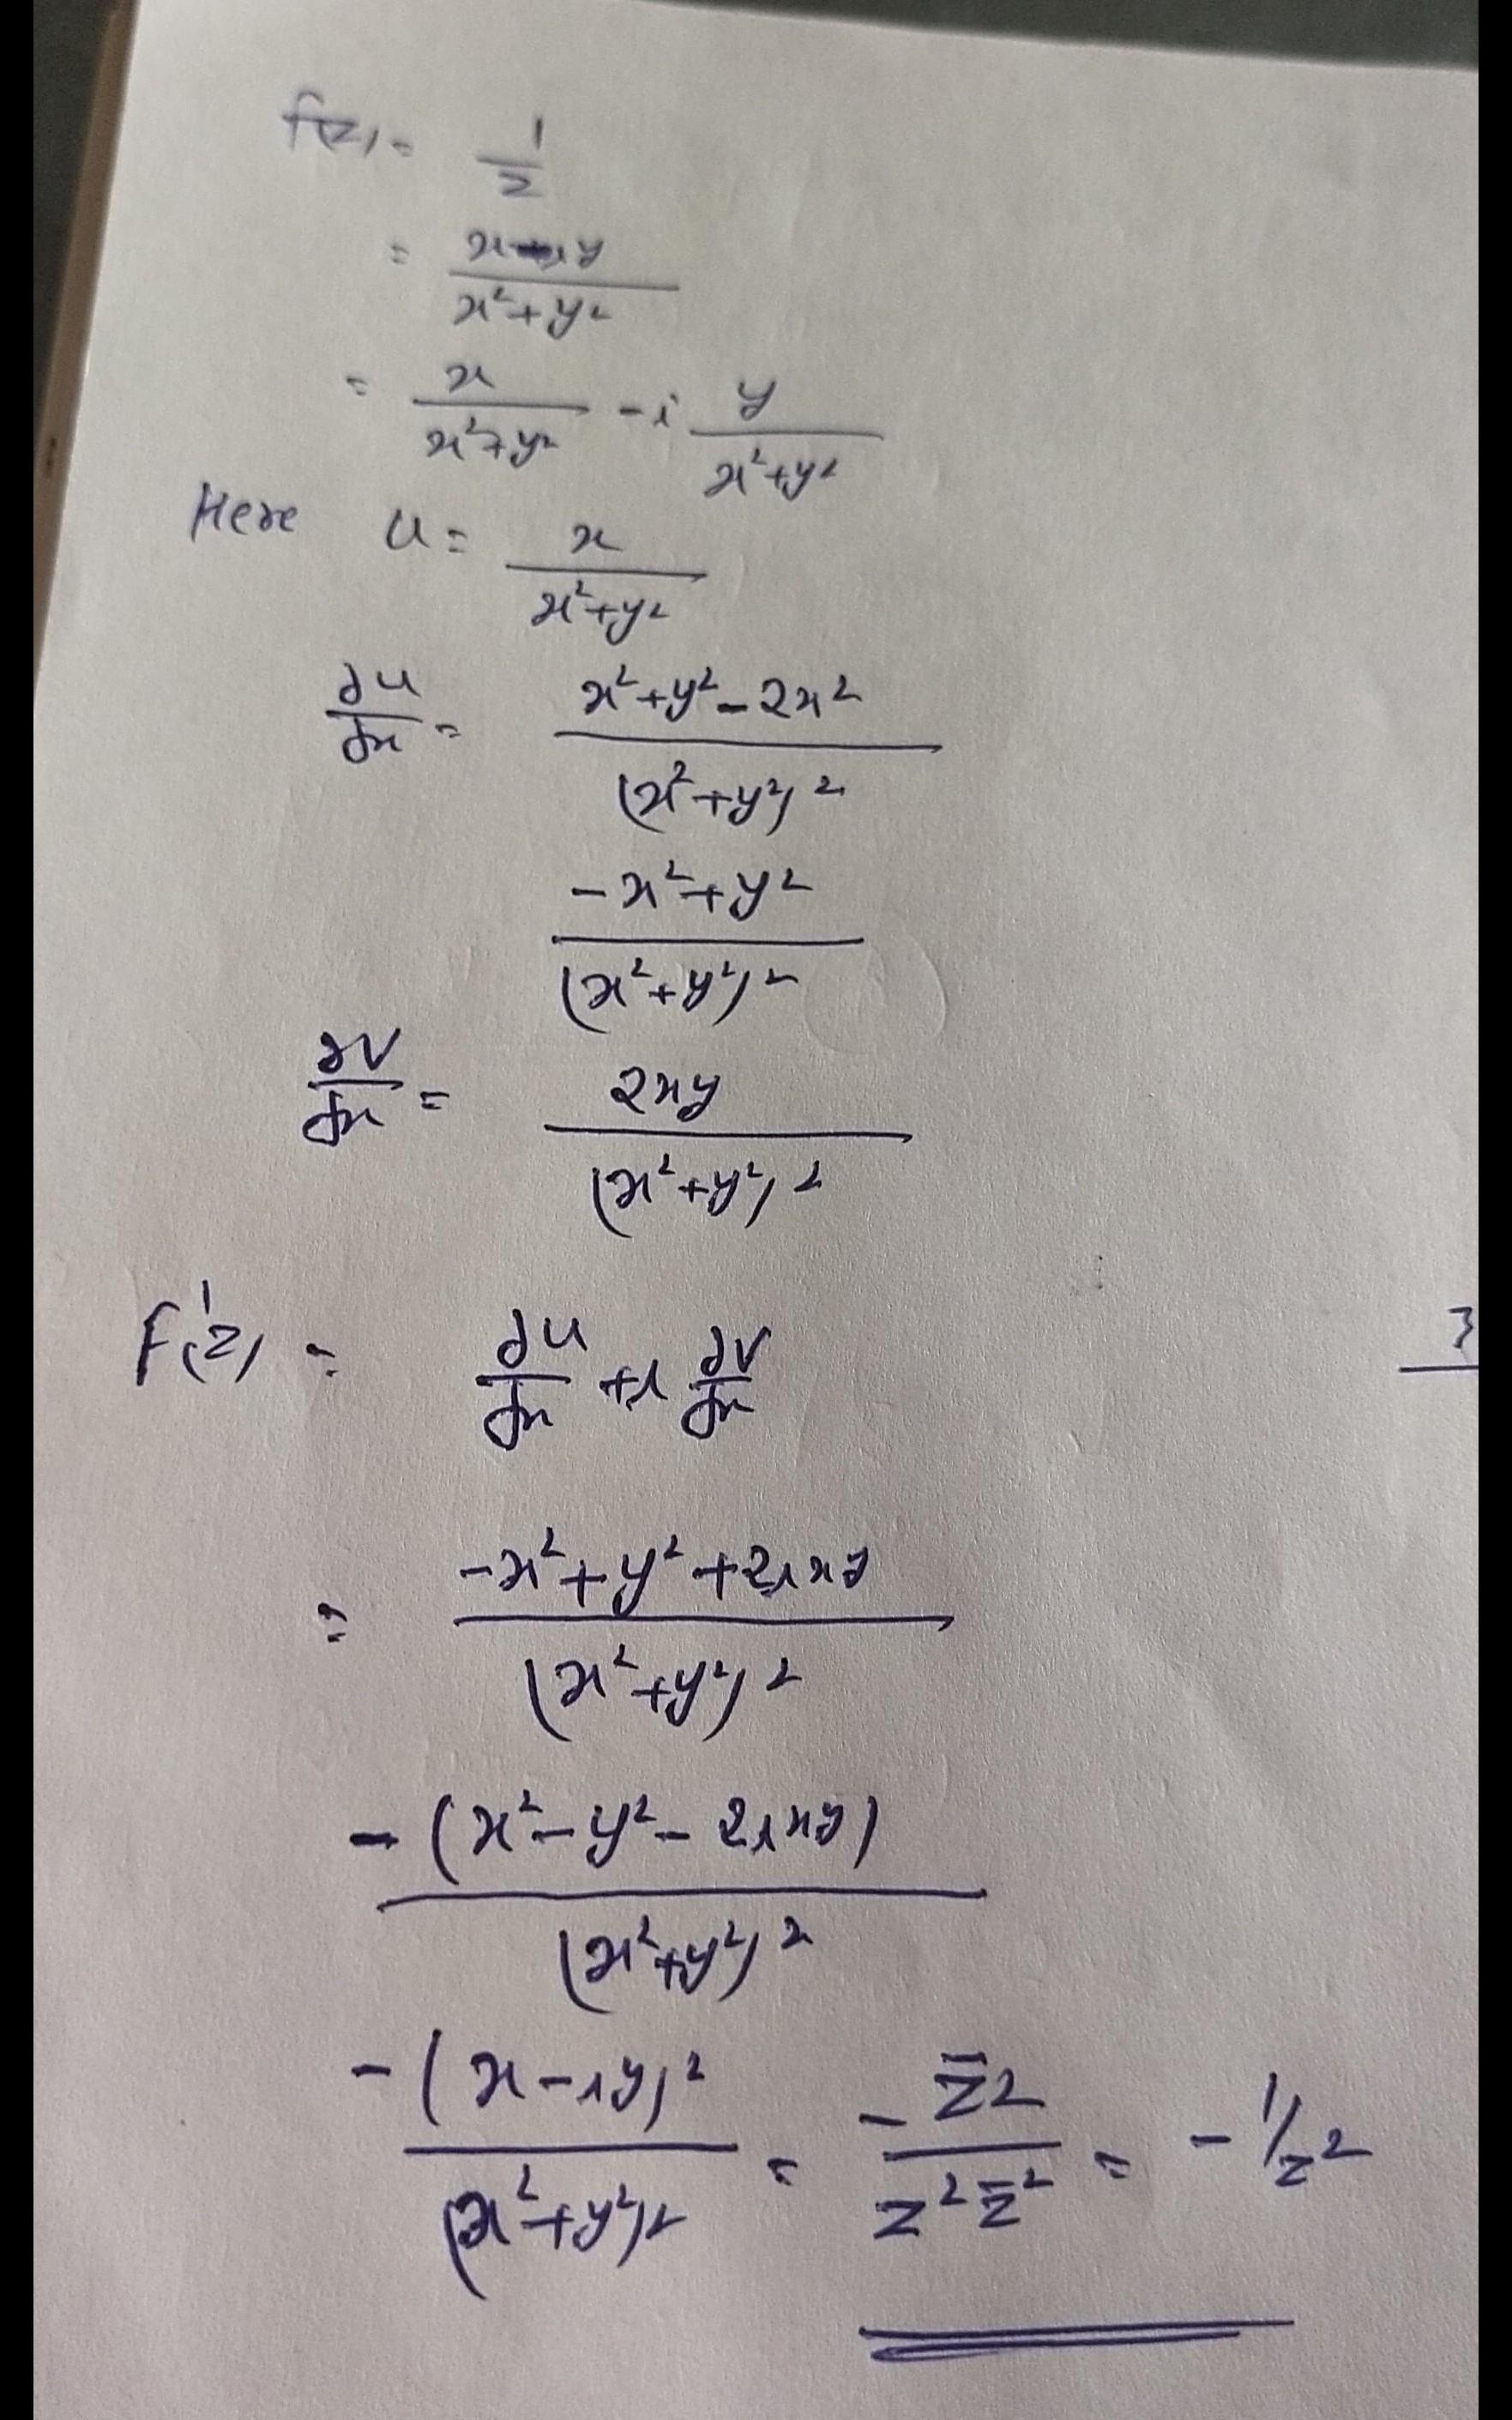 f(z) = 1/z
= x-iy / x²+y²
= x / x²+y² - i y / x²+y²
Here u = x / x²+y²
∂u/∂x = x²+y²-2x² / (x²+y²)²
-x²+y² / (x²+y²)²
∂v/∂x = 2xy / (x²+y²)²
F'(z) = ∂u/∂x + i ∂v/∂x
= -x²+y²+2ixy / (x²+y²)²
-(x²-y²-2ixy) / (x²+y²)²
-(x-iy)² / (x²+y²)² = -z̄² / z² z̄² = -1/z²